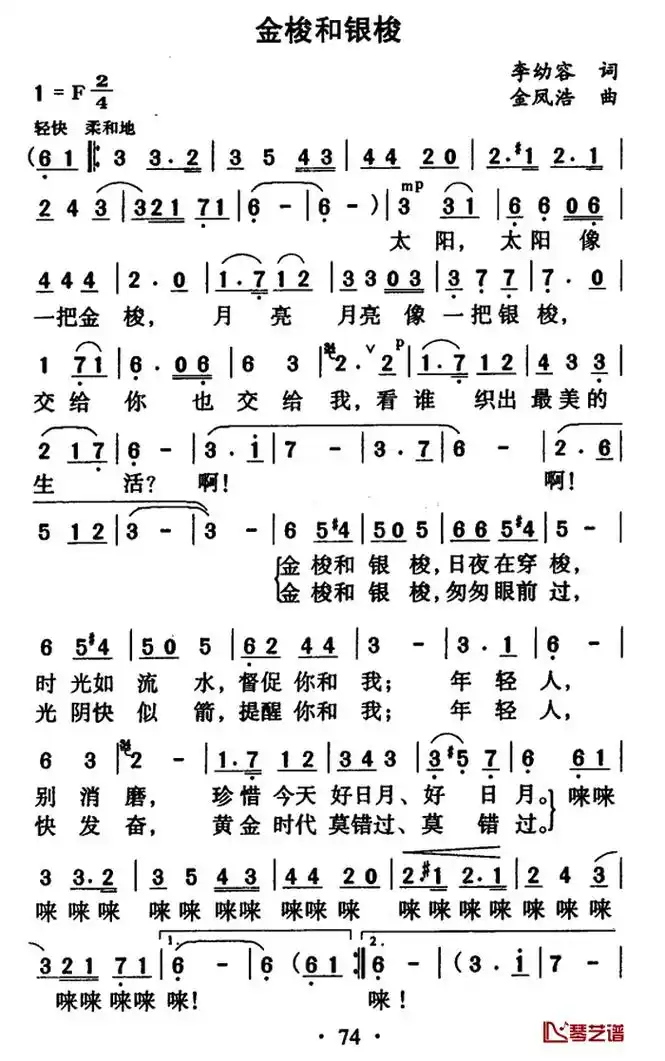 金梭和银梭
李幼容 词
1=F 2/4
金凤浩 曲
轻快 柔和地
(6 1 |: 3 3·2 | 3 5 4 3 | 4 4 2 0 | 2·#1 2·1 |
2 4 3 | 3 2 1 7 1 | 6 - | 6 - ) | mp 3 3 1 | 6 6 0 6 |
太 阳, 太 阳 像
4 4 4 | 2·0 | 1·7 1 2 | 3 3 0 3 | 3 7 7 | 7·0 |
一把金 梭, 月 亮 月亮 像 一把银 梭,
1 7 1 | 6·0 6 | 6 3 | 2·∨ p 2 | 1·7 1 2 | 4 3 3 |
交 给 你 也 交 给 我, 看 谁 织出 最美的
2 1 7 | 6 - | 3·i | 7 - | 3·7 | 6 - | 2·6 |
生 活? 啊! 啊!
5 1 2 | 3 - | 3 - | 6 5#4 | 5 0 5 | 6 6 5#4 | 5 - |
金 梭和 银 梭, 日夜在穿 梭,
金 梭和 银 梭, 匆匆眼前 过,
6 5#4 | 5 0 5 | 6 2 4 4 | 3 - | 3·1 | 6 - |
时 光如 流 水, 督促 你和 我; 年 轻 人,
光 阴快 似 箭, 提醒 你和 我; 年 轻 人,
6 3 | 2 - | 1·7 1 2 | 3 4 3 | 3#5 7 | 6 6 1 |
别 消 磨, 珍惜 今天 好日月、好 日 月。 唻唻
快 发 奋, 黄金 时代 莫错过、莫 错 过。
3 3·2 | 3 5 4 3 | 4 4 2 0 | 2#1 2·1 | 2 4 3 |
唻 唻唻 唻唻 唻唻 唻唻 唻 唻唻 唻唻 唻唻 唻
3 2 1 7 1 | 1. 6 - | 6 (6 1 :| 2. 6 - | (3·i | 7 - |
唻唻 唻唻 唻! 唻!
· 74 ·
琴艺谱